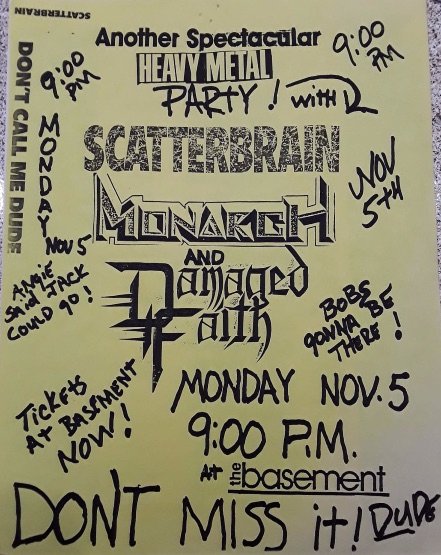 SCATTERBRAIN
DON'T CALL ME DUDE
Another Spectacular
HEAVY METAL
PARTY! with
9:00
PM
9:00
PM
SCATTERBRAIN
MONARCH
AND
Damaged
Faith
MONDAY
NOV 5
NOV
5TH
ANGIE
SAID JACK
COULD GO!
BOBS
GONNA BE
THERE!
TICKETS
AT BASEMENT
NOW!
MONDAY NOV. 5
9:00 P.M.
AT the basement
DON'T MISS it! DUDE